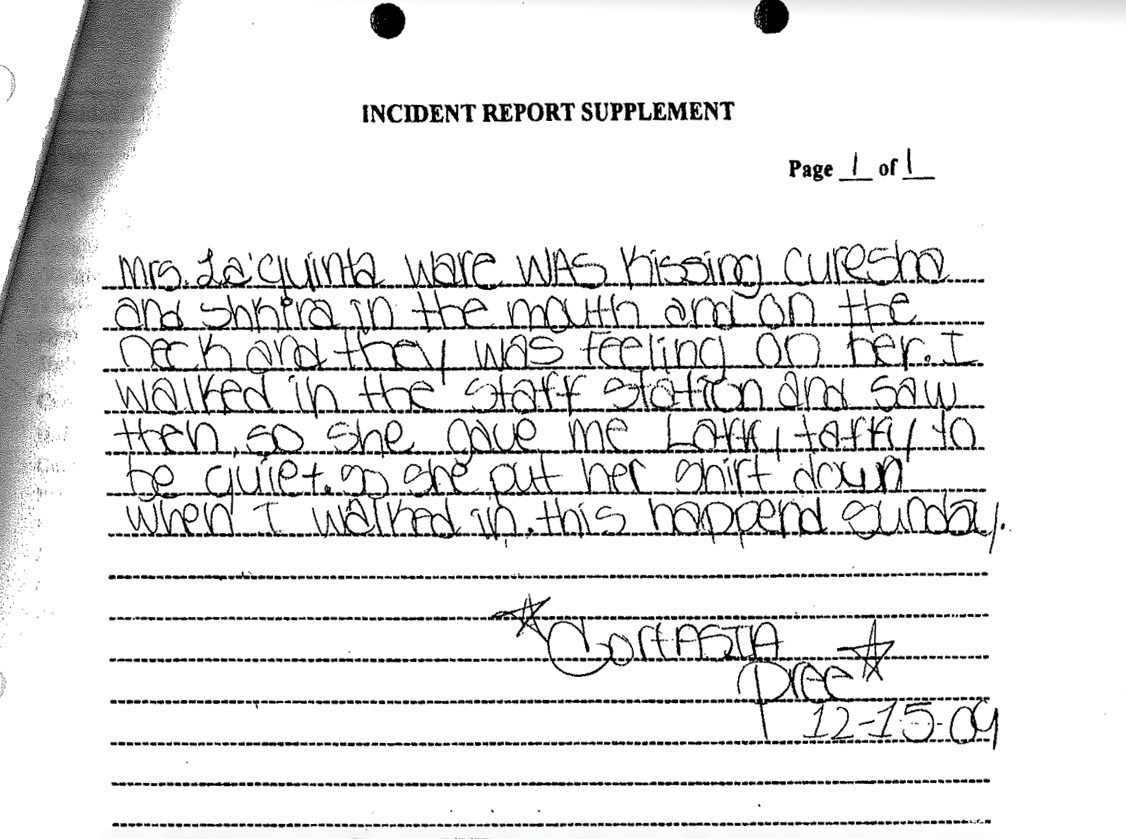 INCIDENT REPORT SUPPLEMENT
Page 1 of 1
Mrs. La'quinta Ware WAS Kissing curesha
and Shkira in the mouth and on the
neck and they was feeling on her. I
walked in the staff station and saw
then, so she gave me Laffy taffy to
be quiet. so she put her shirt down
when I walked in. this happend sunday.
Pree
12-15-09